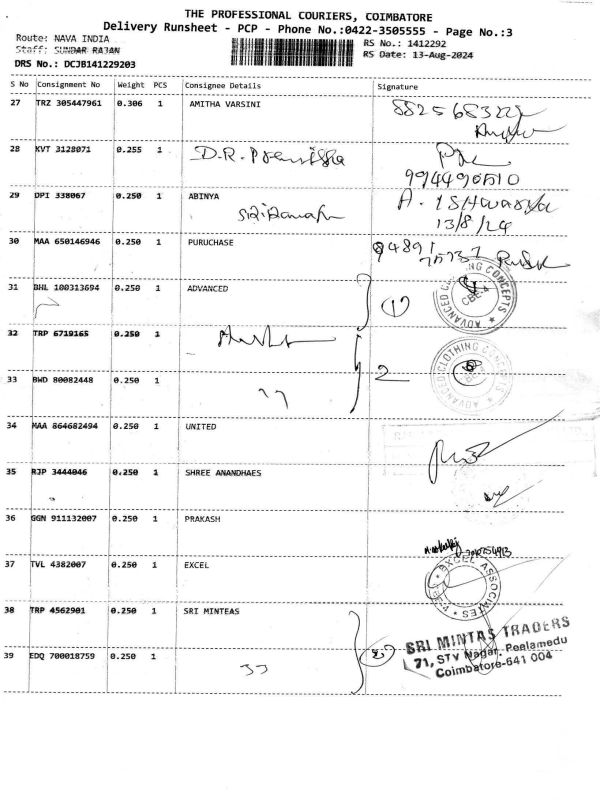 THE PROFESSIONAL COURIERS, COIMBATORE
Delivery Runsheet - PCP - Phone No.:0422-3505555 - Page No.:3
Route: NAVA INDIA
RS No.: 1412292
Staff: SUNDAR RAJAN
RS Date: 13-Aug-2024
DRS No.: DCJB141229203
S No Consignment No Weight PCS Consignee Details Signature
27 TRZ 305447961 0.306 1 AMITHA VARSINI
28 KVT 3128071 0.255 1 D.R.
29 DPI 338067 0.250 1 ABINYA
A. ISHWARYA
13/8/24
30 MAA 650146946 0.250 1 PURUCHASE
31 BHL 100313694 0.250 1 ADVANCED 1
ADVANCED CLOTHING CONCEPTS CBE-4
32 TRP 6719165 0.250 1
ADVANCED CLOTHING CONCEPTS
33 BWD 80082448 0.250 1 " 2
34 MAA 864682494 0.250 1 UNITED
35 RJP 3444046 0.250 1 SHREE ANANDHAES
36 GGN 911132007 0.250 1 PRAKASH
37 TVL 4382007 0.250 1 EXCEL
EXCEL ASSOCIATES
38 TRP 4562901 0.250 1 SRI MINTEAS
SRI MINTAS TRADERS
71, STV Nagar, Peelamedu
Coimbatore-641 004
39 EDQ 700018759 0.250 1 "